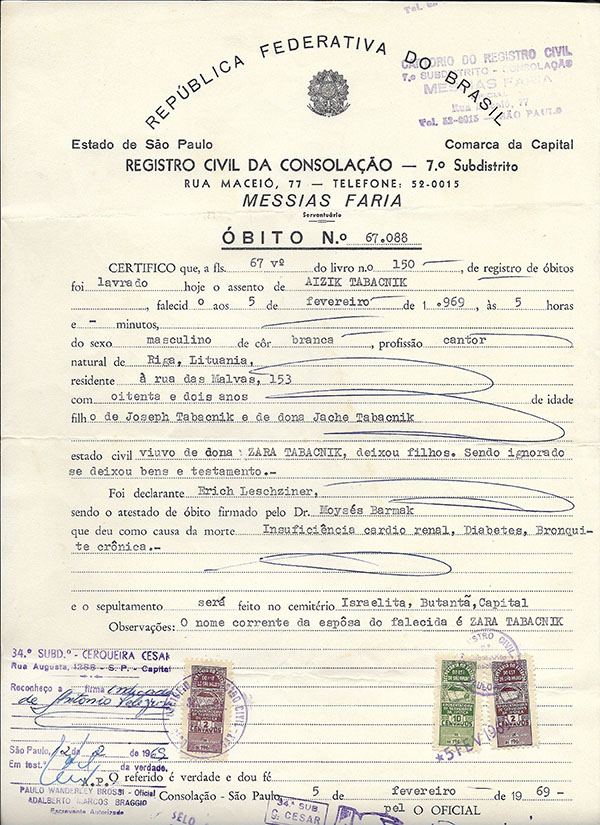 REPÚBLICA FEDERATIVA DO BRASIL
CARTORIO DO REGISTRO CIVIL
7.º SUBDISTRITO - CONSOLAÇÃO
MESSIAS FARIA
77
Tel. 52-0015 — SÃO PAULO
Estado de São Paulo Comarca da Capital
REGISTRO CIVIL DA CONSOLAÇÃO — 7.º Subdistrito
RUA MACEIÓ, 77 — TELEFONE: 52-0015
MESSIAS FARIA
Serventuário
ÓBITO N.º 67.088
CERTIFICO que, a fls. 67 vº do livro n.o 150, de registro de óbitos
foi lavrado hoje o assento de AIZIK TABACNIK
, falecid o aos 5 de fevereiro de 1.969, às 5 horas
e - minutos,
do sexo masculino de côr branca, profissão cantor
natural de Riga, Lituania,
residente à rua das Malvas, 153
com oitenta e dois anos de idade
filho de Joseph Tabacnik e de dona Jache Tabacnik
estado civil viuvo de dona ZARA TABACNIK, deixou filhos. Sendo ignorado
se deixou bens e testamento.-
Foi declarante Erich Leschziner,
sendo o atestado de óbito firmado pelo Dr. Moysés Barmak
que deu como causa da morte Insuficiência cardio renal, Diabetes, Bronqui-
te crônica.-
e o sepultamento será feito no cemitério Israelita, Butantã, Capital
Observações: O nome corrente da espôsa do falecida é ZARA TABACNIK
34.º SUBD.º - CERQUEIRA CESAR
Rua Augusta, 1388 - S. P. - Capital
Reconheço a firma
de Antonio
São Paulo, 12 de 2 de 1969
Em test.º da verdade.
PAULO WANDERLEY BROSSI - Oficial
ADALBERTO MARCOS BRAGGIO
Escrevente Autorizado
2
CENTAVOS
10
CENTAVOS
2
CENTAVOS
*5 FEV 196
O referido é verdade e dou fé
Consolação - São Paulo, 5 de fevereiro de 19 69-
pel O OFICIAL
34º SUB.
C. CESAR
SELO